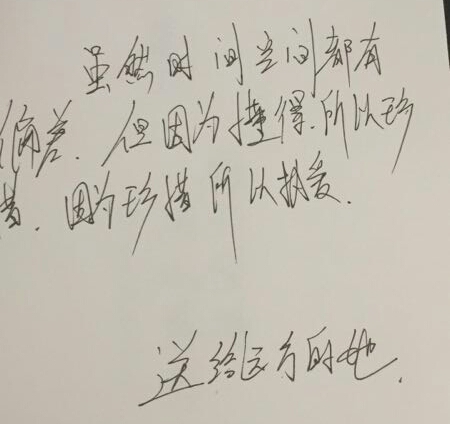 虽然时间空间都有
偏差.但因为懂得.所以珍
惜.因为珍惜所以执爱.
送给远方的她.